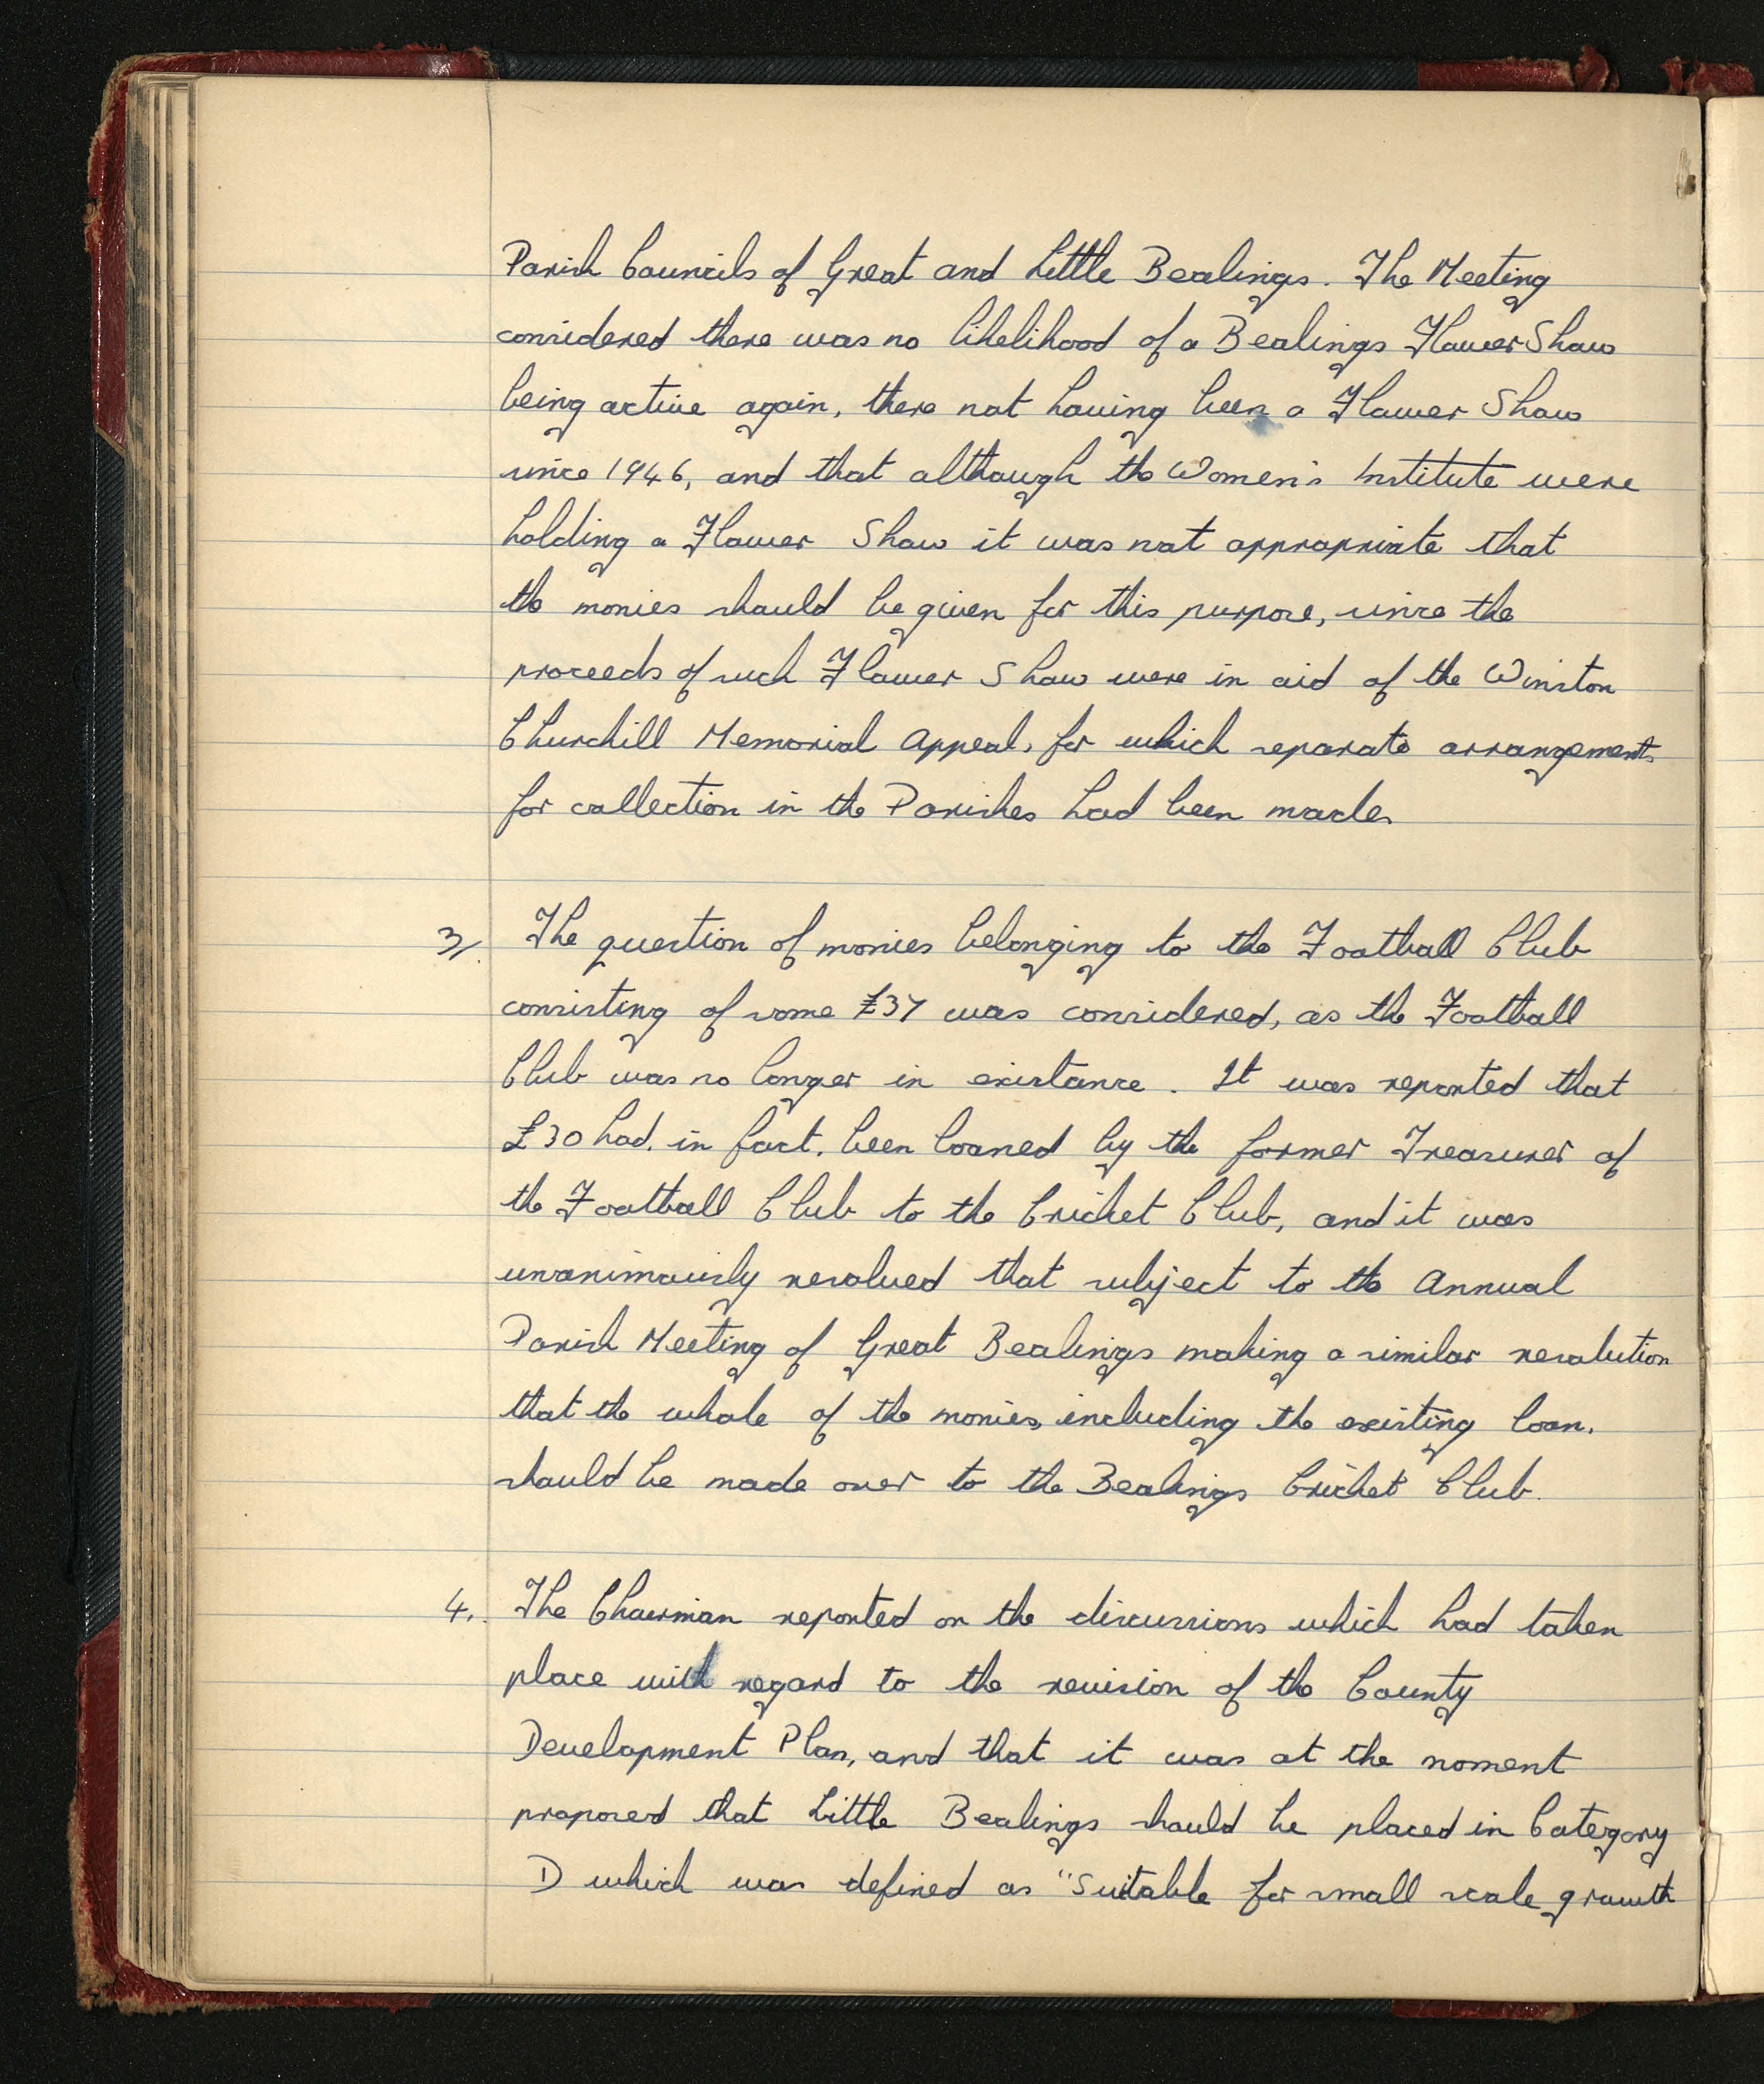 Parish Councils of Great and Little Bealings. The Meeting
considered there was no likelihood of a Bealings Flower Show
being active again, there not having been a Flower Show
since 1946, and that although the Women's Institute were
holding a Flower Show it was not appropriate that
the monies should be given for this purpose, since the
proceeds of such Flower Show were in aid of the Winston
Churchill Memorial Appeal, for which separate arrangements
for collection in the Parishes had been made.
3/. The question of monies belonging to the Football Club
consisting of some £37 was considered, as the Football
Club was no longer in existance. It was reported that
£30 had, in fact, been loaned by the former Treasurer of
the Football Club to the Cricket Club, and it was
unanimously resolved that subject to the Annual
Parish Meeting of Great Bealings making a similar resolution
that the whole of the monies, including the existing loan,
should be made over to the Bealings Cricket Club.
4. The Chairman reported on the discussions which had taken
place with regard to the revision of the County
Development Plan, and that it was at the moment
proposed that Little Bealings should be placed in Category
D which was defined as "Suitable for small scale growth